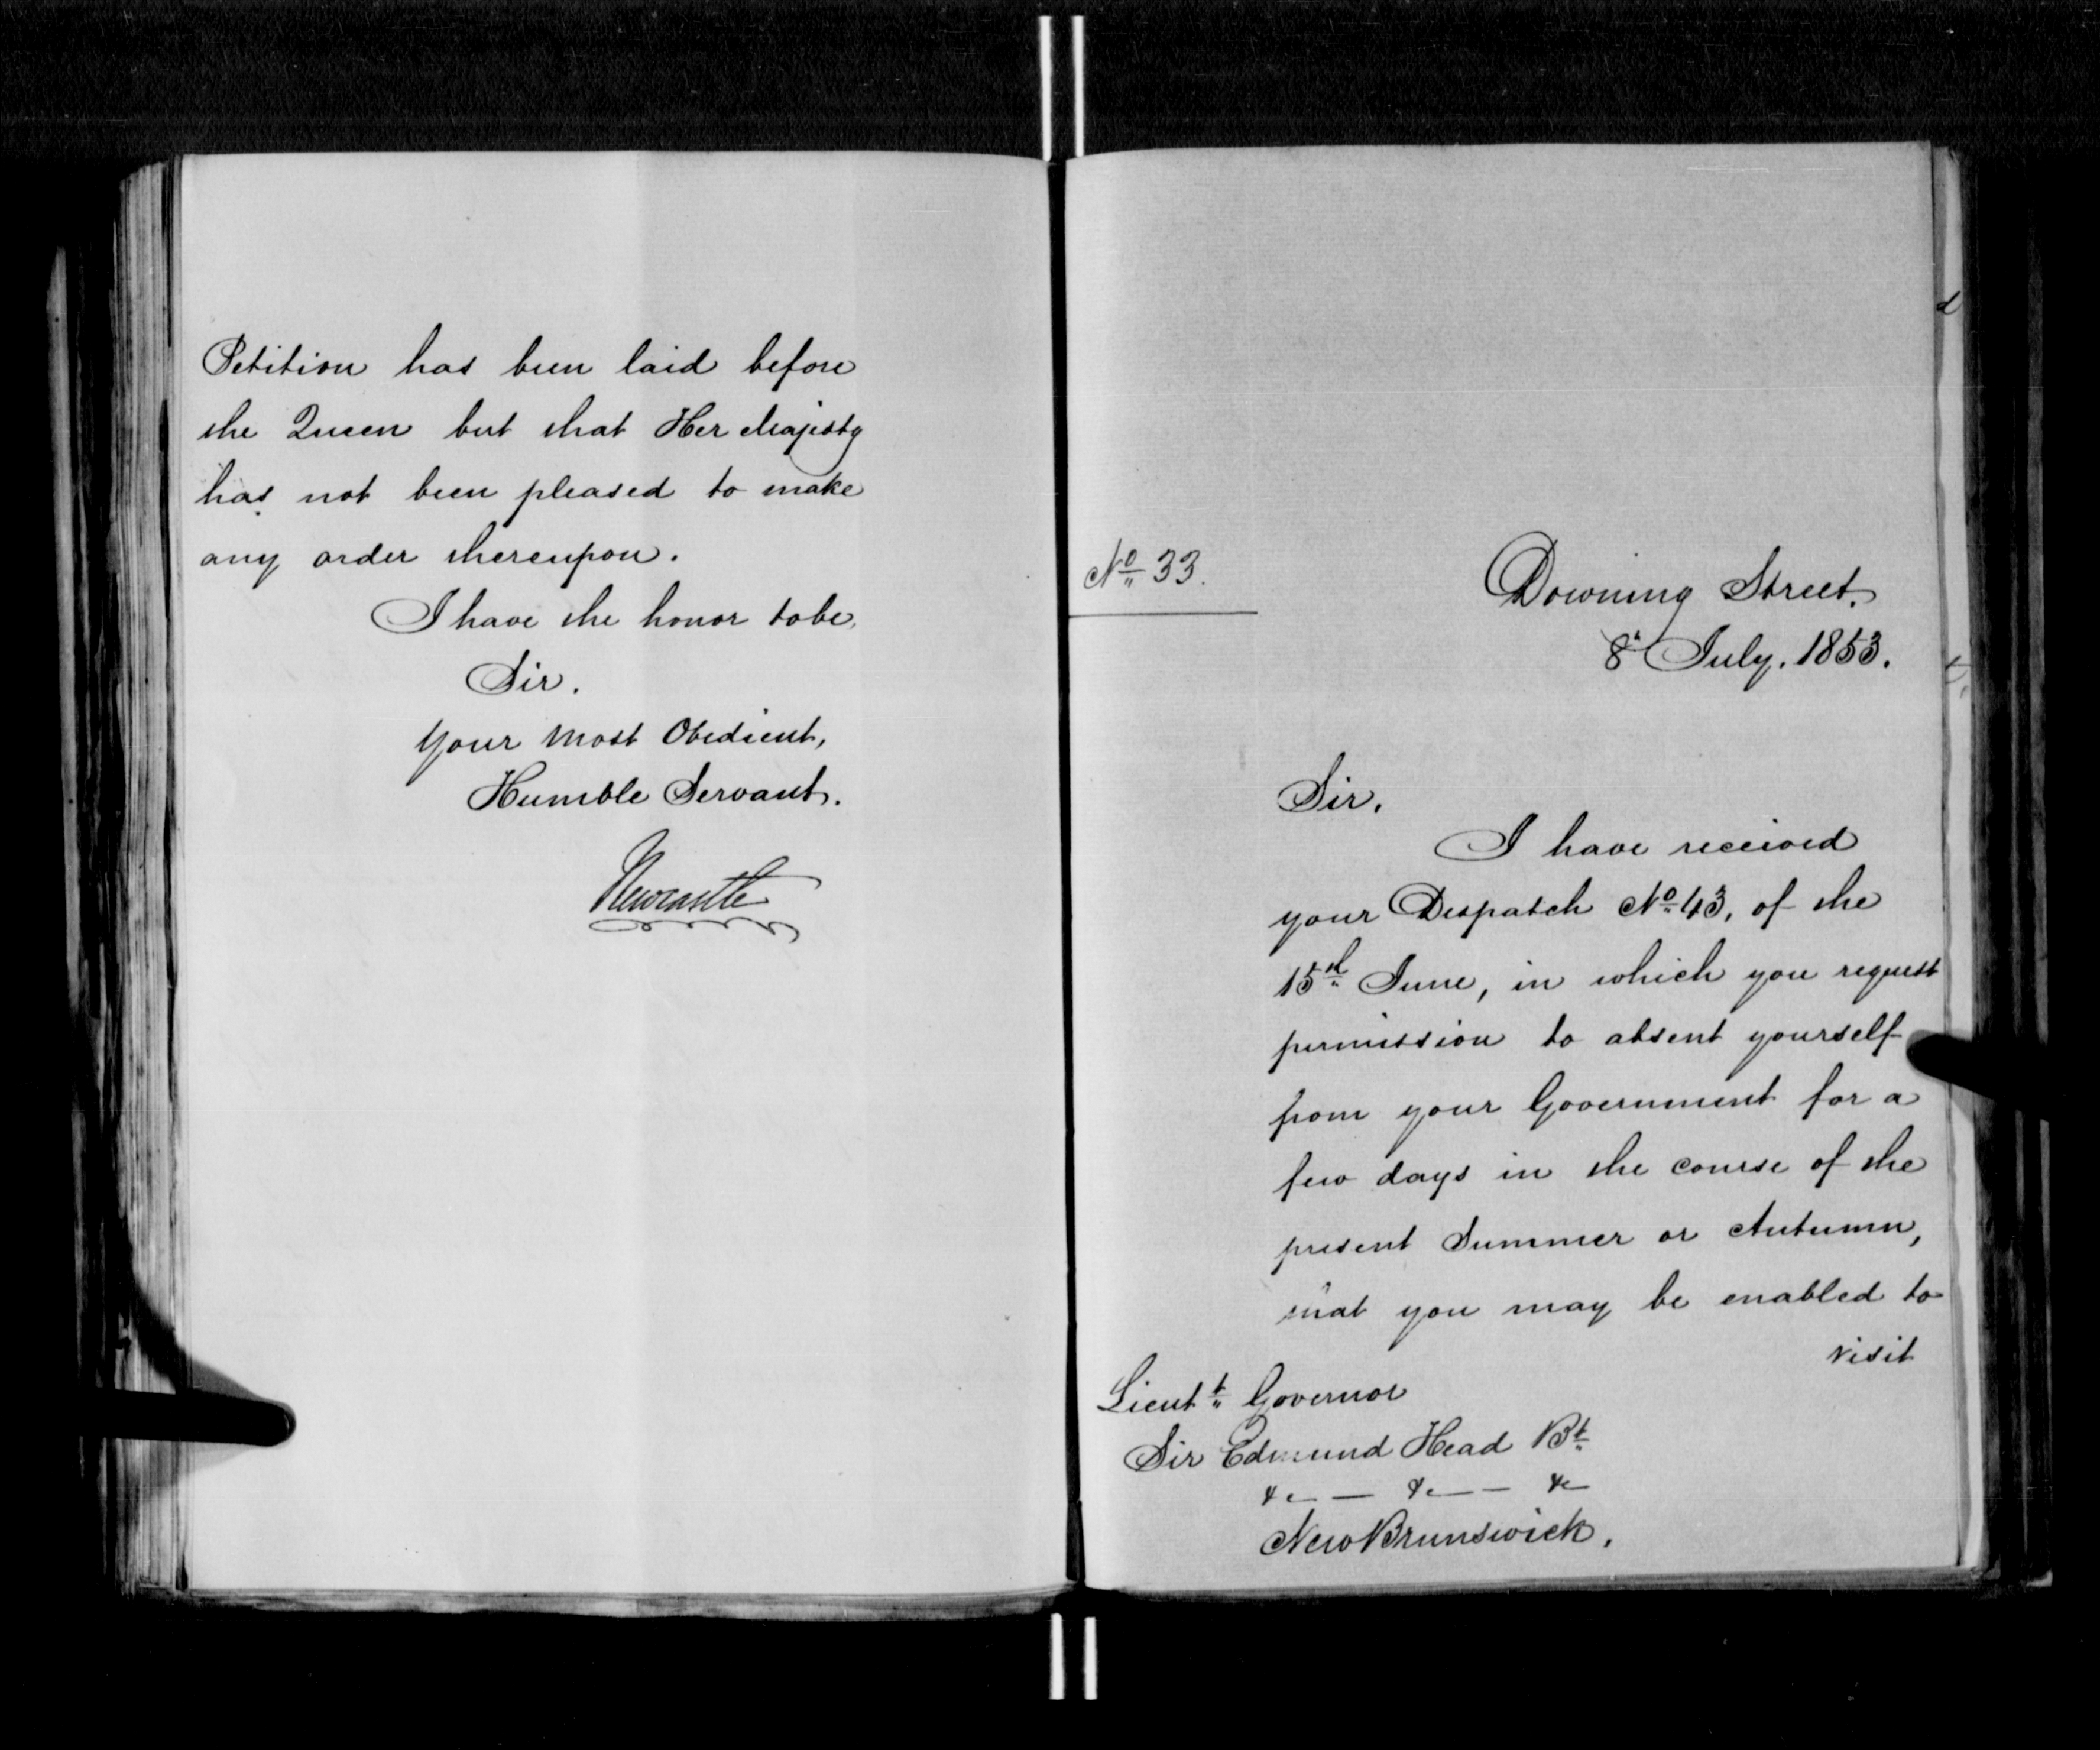 Petition has been laid before
the Queen but that Her Majesty
has not been pleased to make
any order thereupon.
I have the honor to be,
Sir.
Your Most Obedient,
Humble Servant.
Newcastle
No. 33.
Downing Street.
8 July. 1853.
Sir,
I have received
your Despatch No. 43, of the
15th June, in which you request
permission to absent yourself
from your Government for a
few days in the course of the
present Summer or Autumn,
that you may be enabled to
visit
Lieutt. Governor
Sir Edmund Head Bt.
&c — &c — &c
New Brunswick.